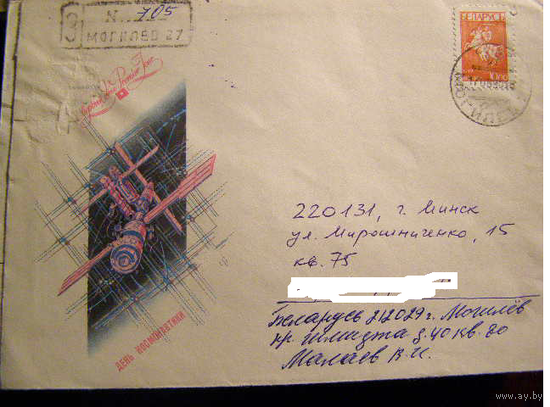 З
N 705
МОГИЛЕВ 27
БЕЛАРУСЬ
220131, г. Минск
ул. Мирошниченко, 15
кв. 75
Беларусь 212029 г. Могилёв
пр Шмидта д. 40 кв. 80
Малаев В.И.
ДЕНЬ КОСМОНАВТИКИ
www.ay.by